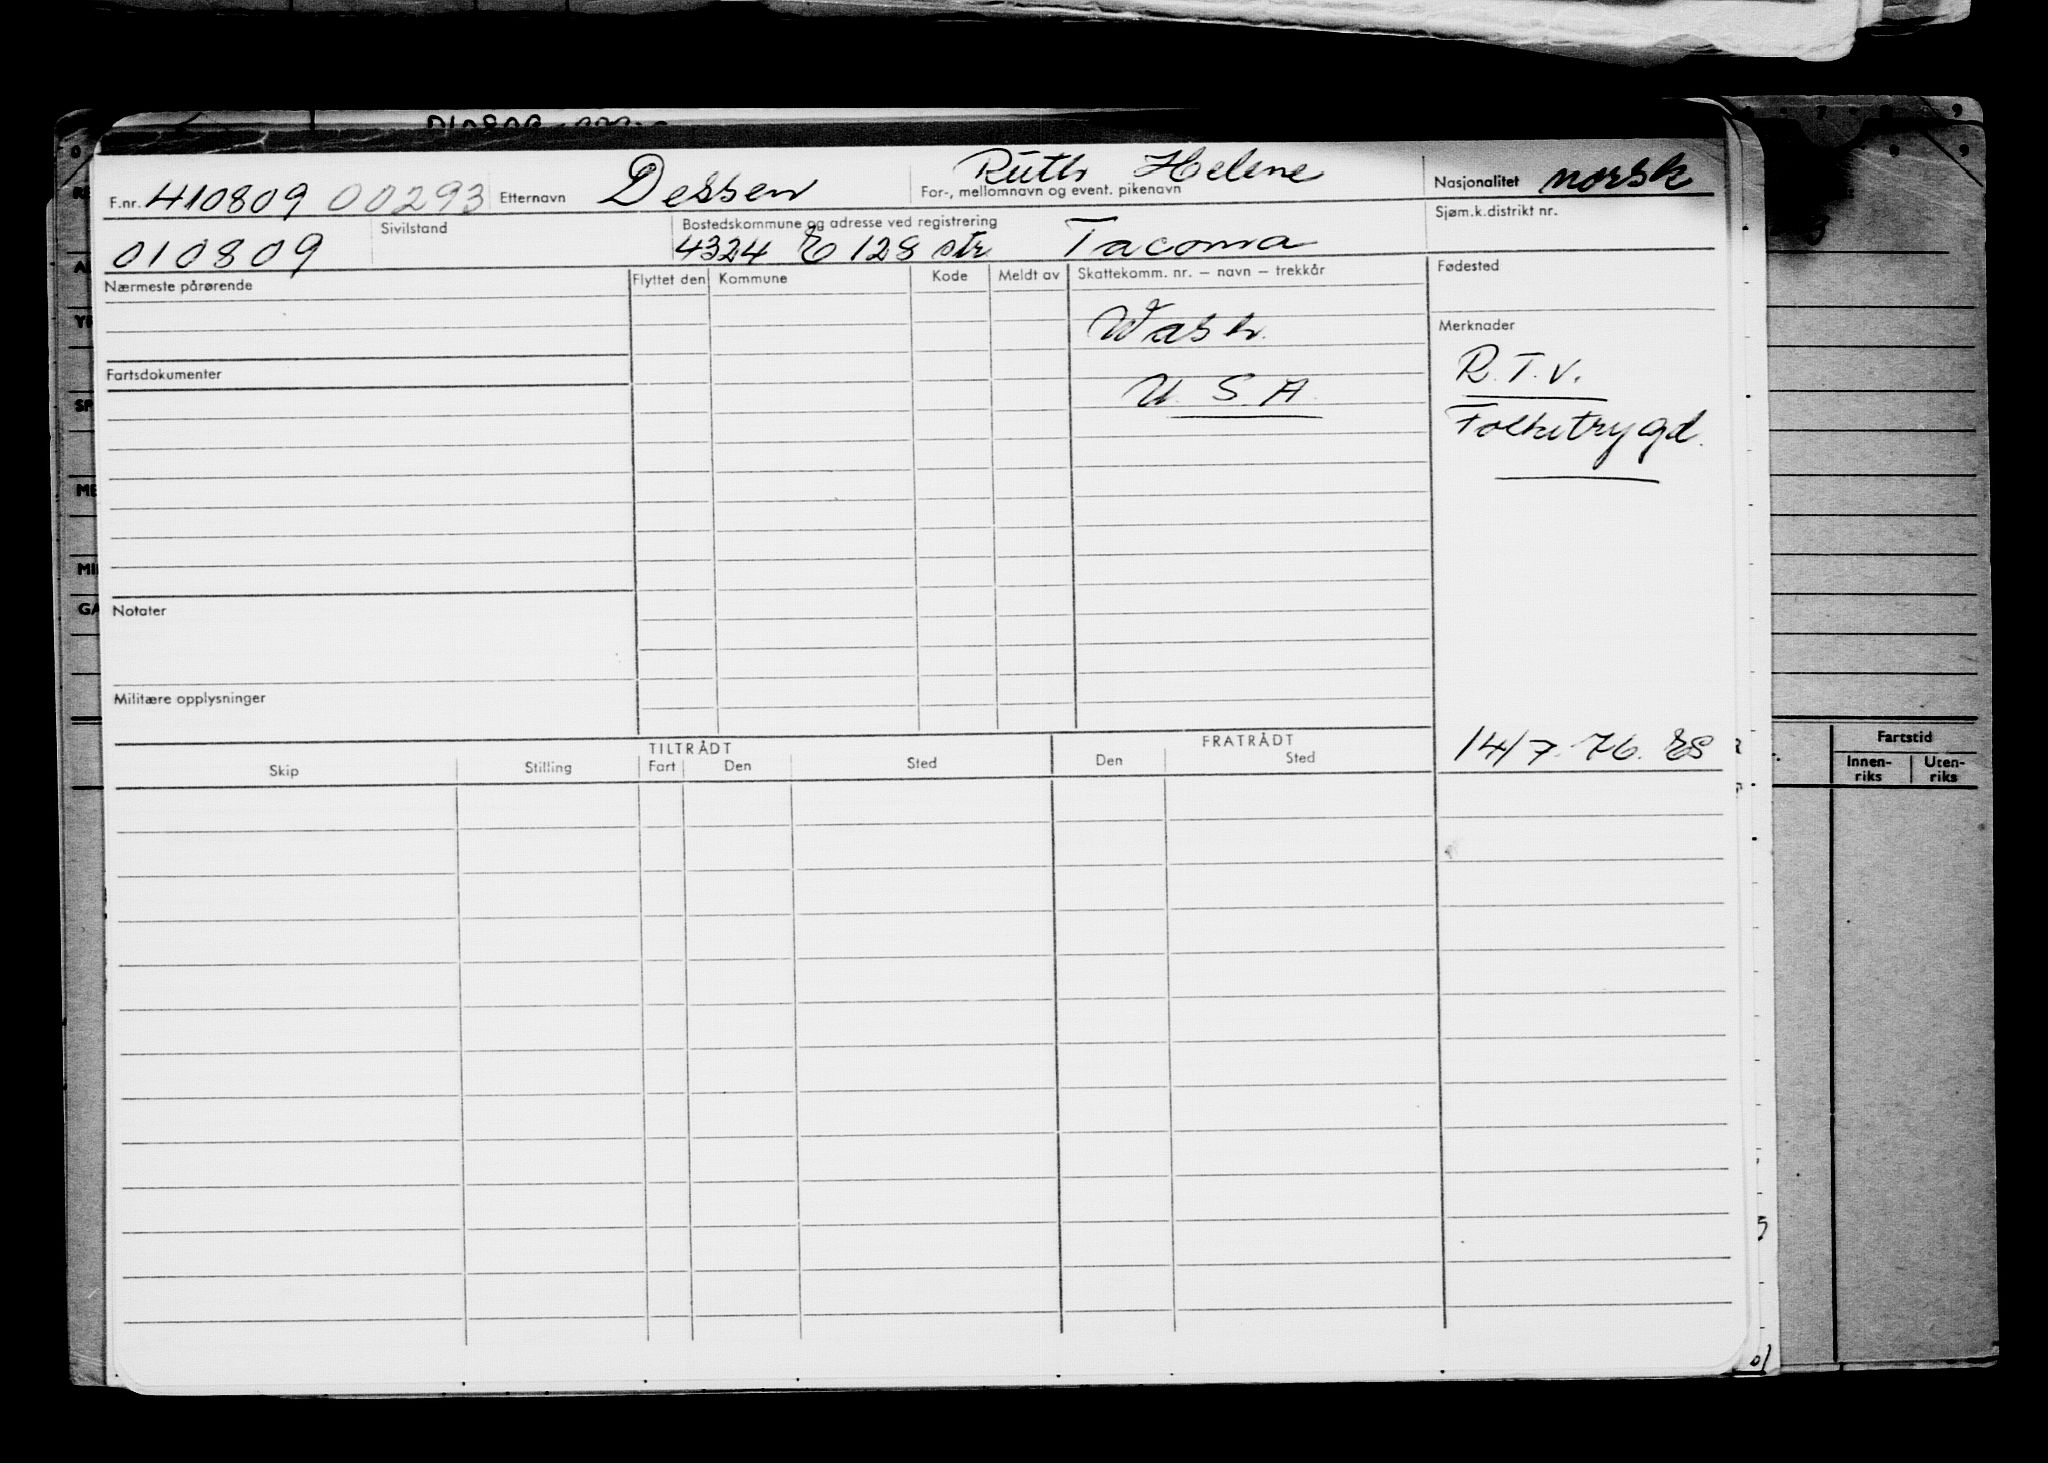 F.nr. 410809 00293 Etternavn Dessen Ruth Helene For-, mellomnavn og event. pikenavn Nasjonalitet norsk
010809 Sivilstand Bostedskommune og adresse ved registrering 4324 E 128 str Tacoma Sjøm.k.distrikt nr.
Nærmeste pårørende Flyttet den Kommune Kode Meldt av Skattekomm. nr. – navn – trekkår Fødested
Wash. Merknader
Fartsdokumenter U. S. A. R.T.V.
Folketrygd.
Notater
Militære opplysninger
14/7.76. ES
TILTRÅDT FRATRÅDT
Skip Stilling Fart Den Sted Den Sted
Fartstid
Innen-riks Uten-riks